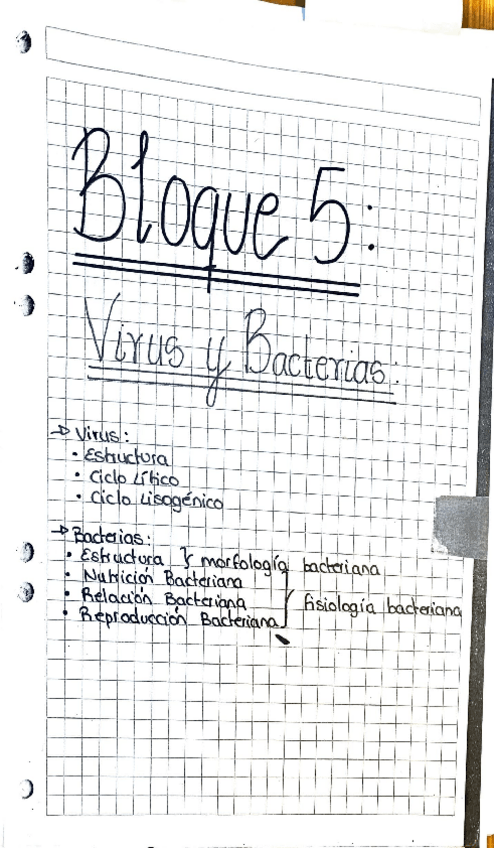 Bloque 5:
Virus y Bacterias:
→ Virus:
• Estructura
• Ciclo Lítico
• Ciclo Lisogénico
→ Bacterias:
• Estructura } morfología bacteriana
• Nutrición Bacteriana
• Relación Bacteriana } fisiología bacteriana
• Reproducción Bacteriana